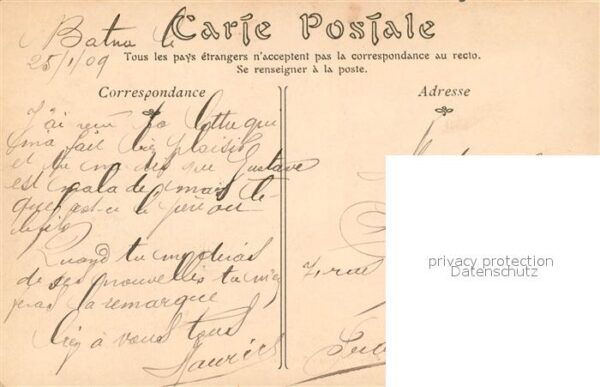 Carte Postale
Batna le
25/1/09
Tous les pays étrangers n'acceptent pas la correspondance au recto.
Se renseigner à la poste.
Correspondance
Adresse
J'ai reçu ta lettre qui
m'a fait bien plaisir
et tu me dis que Gustave
est malade mais
quel est-ce le père ou le
Quand tu me donneras
de ses nouvelles tu me
la remarque
à vous tous
Maurice
7, rue
privacy protection
Datenschutz